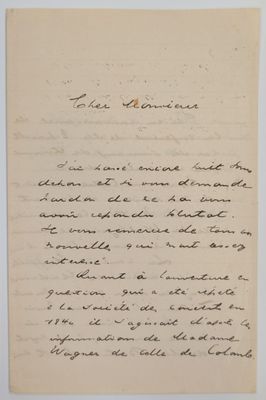 Cher Monsieur
J'ai passé encore huit jours
dehors et je vous demande
pardon de ne pas vous
avoir répondu plutot.
Je vous remercie de tous vos
nouvelles qui m'ont assez
interessé.
Quant à l'ouverture en
question qui a été repété
à la Société des concerts en
1840 il s'agissait d'après les
informations de Madame
Wagner de celle de Colomb